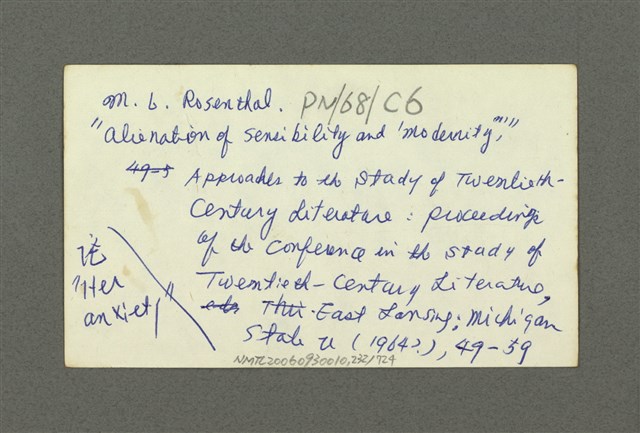 M. L. Rosenthal. PN/68/C6
"Alienation of Sensibility and 'modernity',"
49-5 Approaches to the Study of Twentieth-
Century Literature: proceedings
of the Conference in the study of
Twentieth-Century Literature,
eds Thir. East Lansing; Michigan
State U (1964?), 49-59
论
"Her
anxiety"
NMTL20060930010,232/724